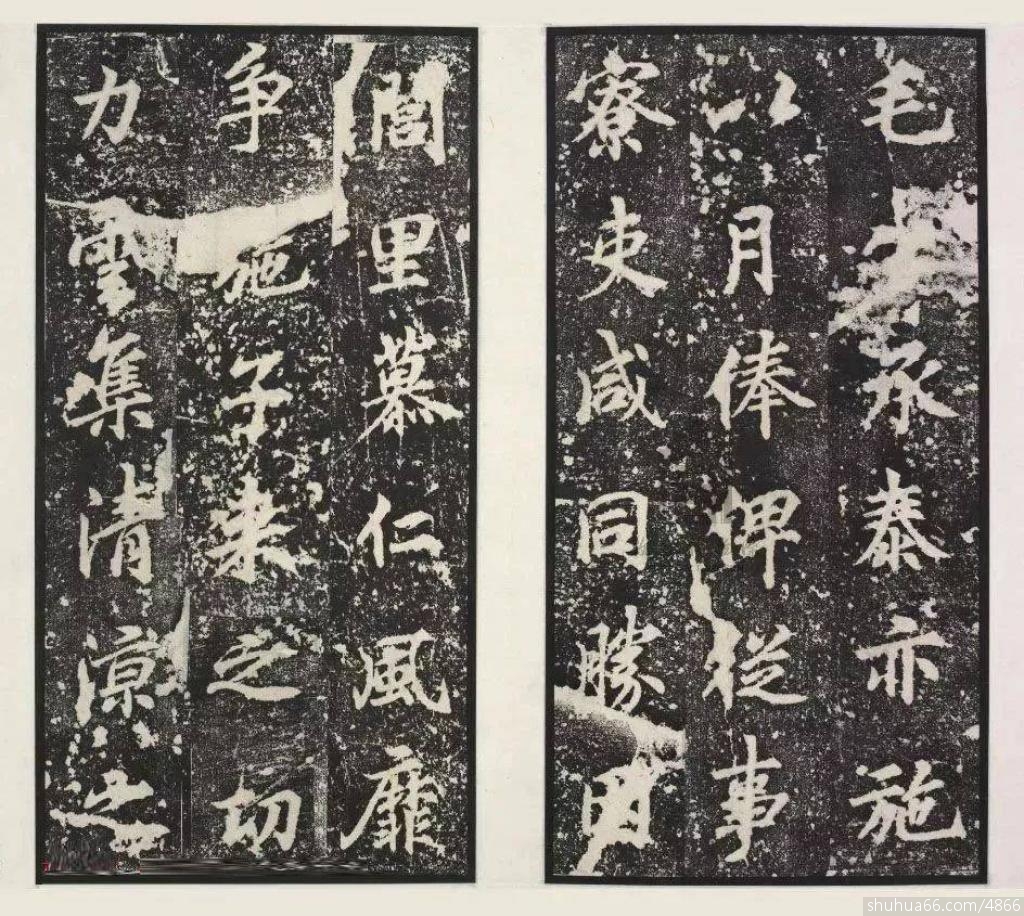 毛承泰亦施
以月俸俾從事
寮吏咸同勝因
閭里慕仁風靡
争施子来之功
力雲集清涼之
shuhua66.com/4866